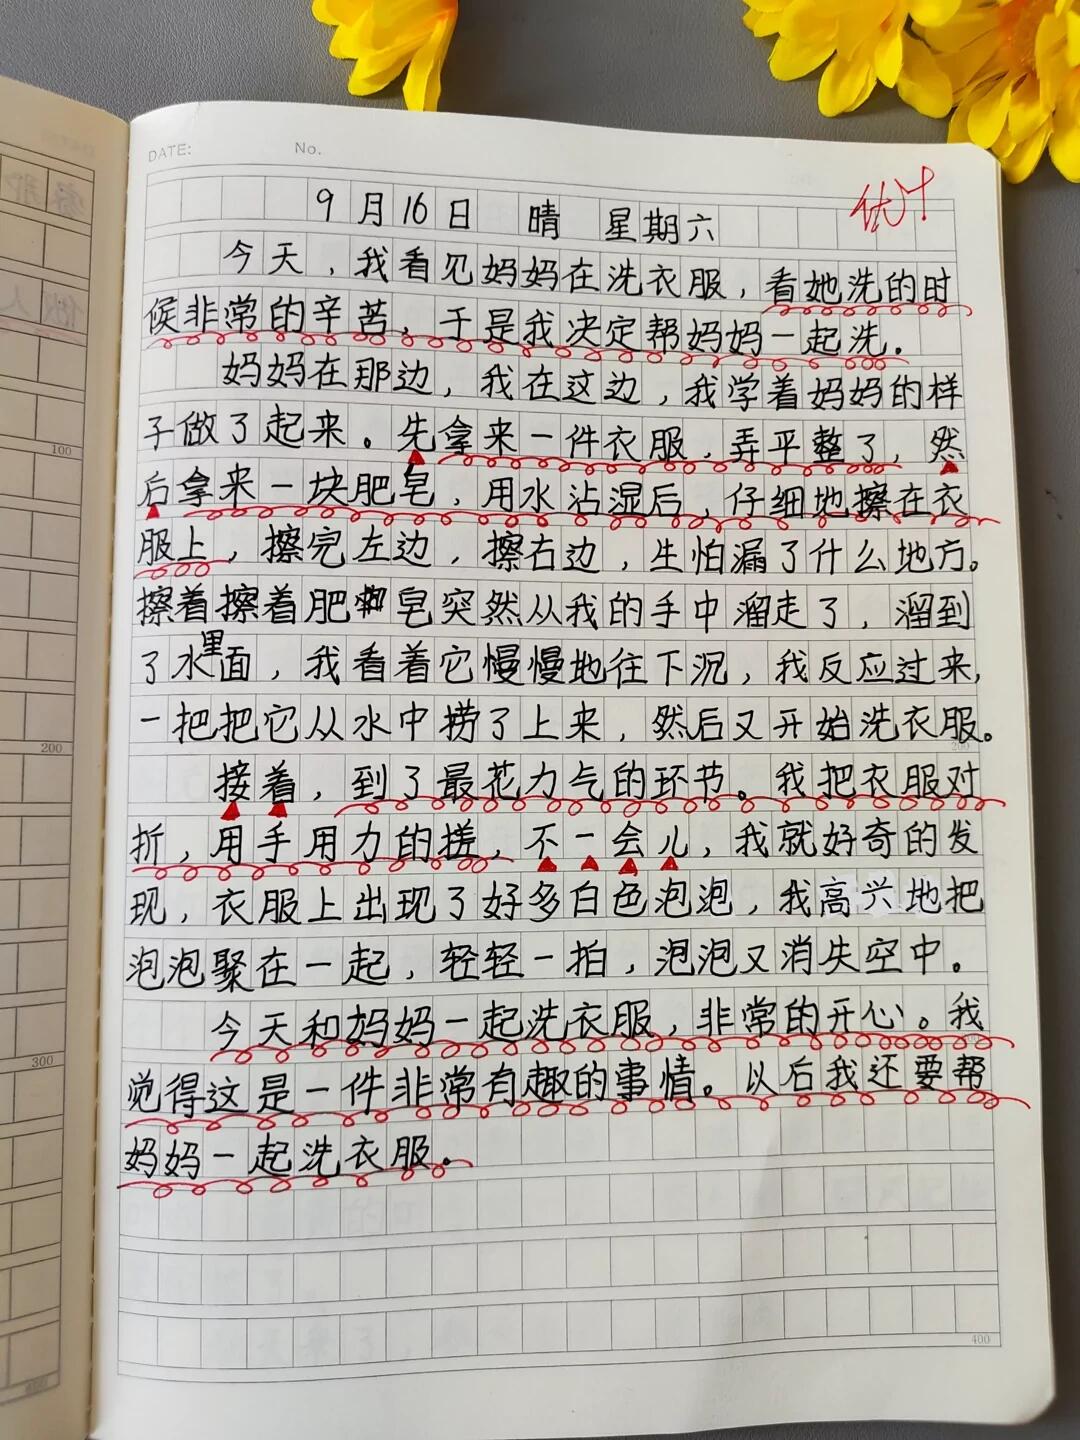 DATE: No.
优+
9月16日 晴 星期六
今天，我看见妈妈在洗衣服，看她洗的时
候非常的辛苦，于是我决定帮妈妈一起洗.
妈妈在那边，我在这边，我学着妈妈的样
子做了起来。先拿来一件衣服，弄平整了，然
后拿来一块肥皂，用水沾湿后，仔细地擦在衣
服上，擦完左边，擦右边，生怕漏了什么地方。
擦着擦着肥皂突然从我的手中溜走了，溜到
了水里面，我看着它慢慢地往下沉，我反应过来，
一把把它从水中捞了上来，然后又开始洗衣服。
接着，到了最花力气的环节。我把衣服对
折，用手用力的搓，不一会儿，我就好奇的发
现，衣服上出现了好多白色泡泡，我高兴地把
泡泡聚在一起，轻轻一拍，泡泡又消失空中。
今天和妈妈一起洗衣服，非常的开心。我
觉得这是一件非常有趣的事情。以后我还要帮
妈妈一起洗衣服.
100
200
300
200
400